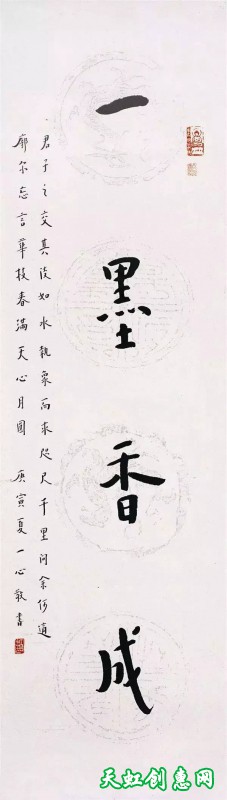 一墨香成
君子之交其淡如水執象而求咫尺千里问余何適
廓尔忘言華枝春满天心月圆 庚寅夏一心敬書
天虹创惠网